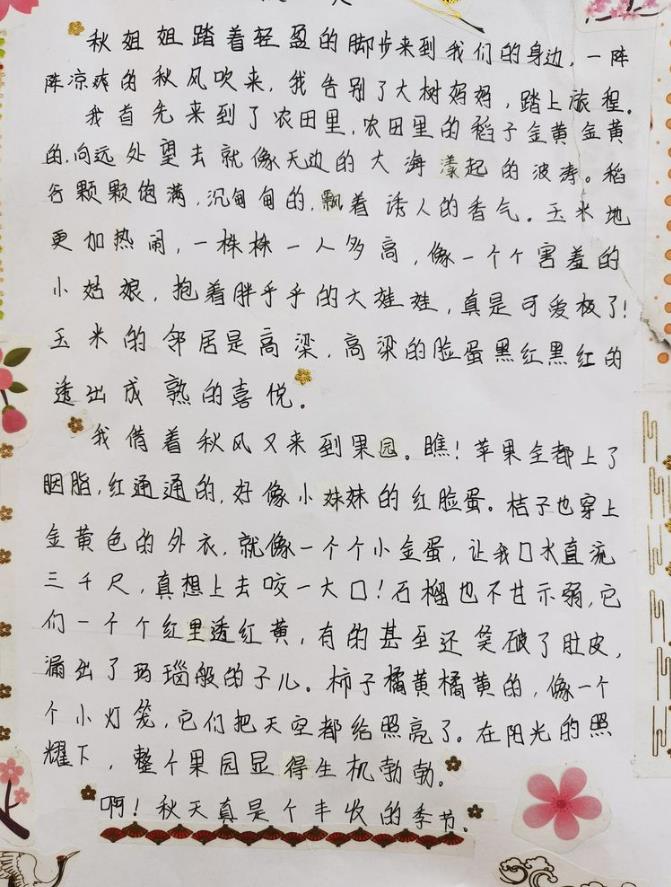 秋姐姐踏着轻盈的脚步来到我们的身边，一阵
阵凉爽的秋风吹来，我告别了大树妈妈，踏上旅程。
我首先来到了农田里，农田里的稻子金黄金黄
的，向远处望去就像天边的大海漾起的波涛。稻
谷颗颗饱满，沉甸甸的，飘着诱人的香气。玉米地
更加热闹，一株株一人多高，像一个个害羞的
小姑娘，抱着胖乎乎的大娃娃，真是可爱极了！
玉米的邻居是高梁，高梁的脸蛋黑红黑红的
透出成熟的喜悦。
我借着秋风又来到果园。瞧！苹果全都上了
胭脂，红通通的，好像小妹妹的红脸蛋。桔子也穿上
金黄色的外衣，就像一个个小金蛋，让我口水直流
三千尺，真想上去咬一大口！石榴也不甘示弱，它
们一个个红里透红黄，有的甚至还笑破了肚皮，
漏出了玛瑙般的子儿。柿子橘黄橘黄的，像一个
个小灯笼，它们把天空都给照亮了。在阳光的照
耀下，整个果园显得生机勃勃。
啊！秋天真是个丰收的季节。